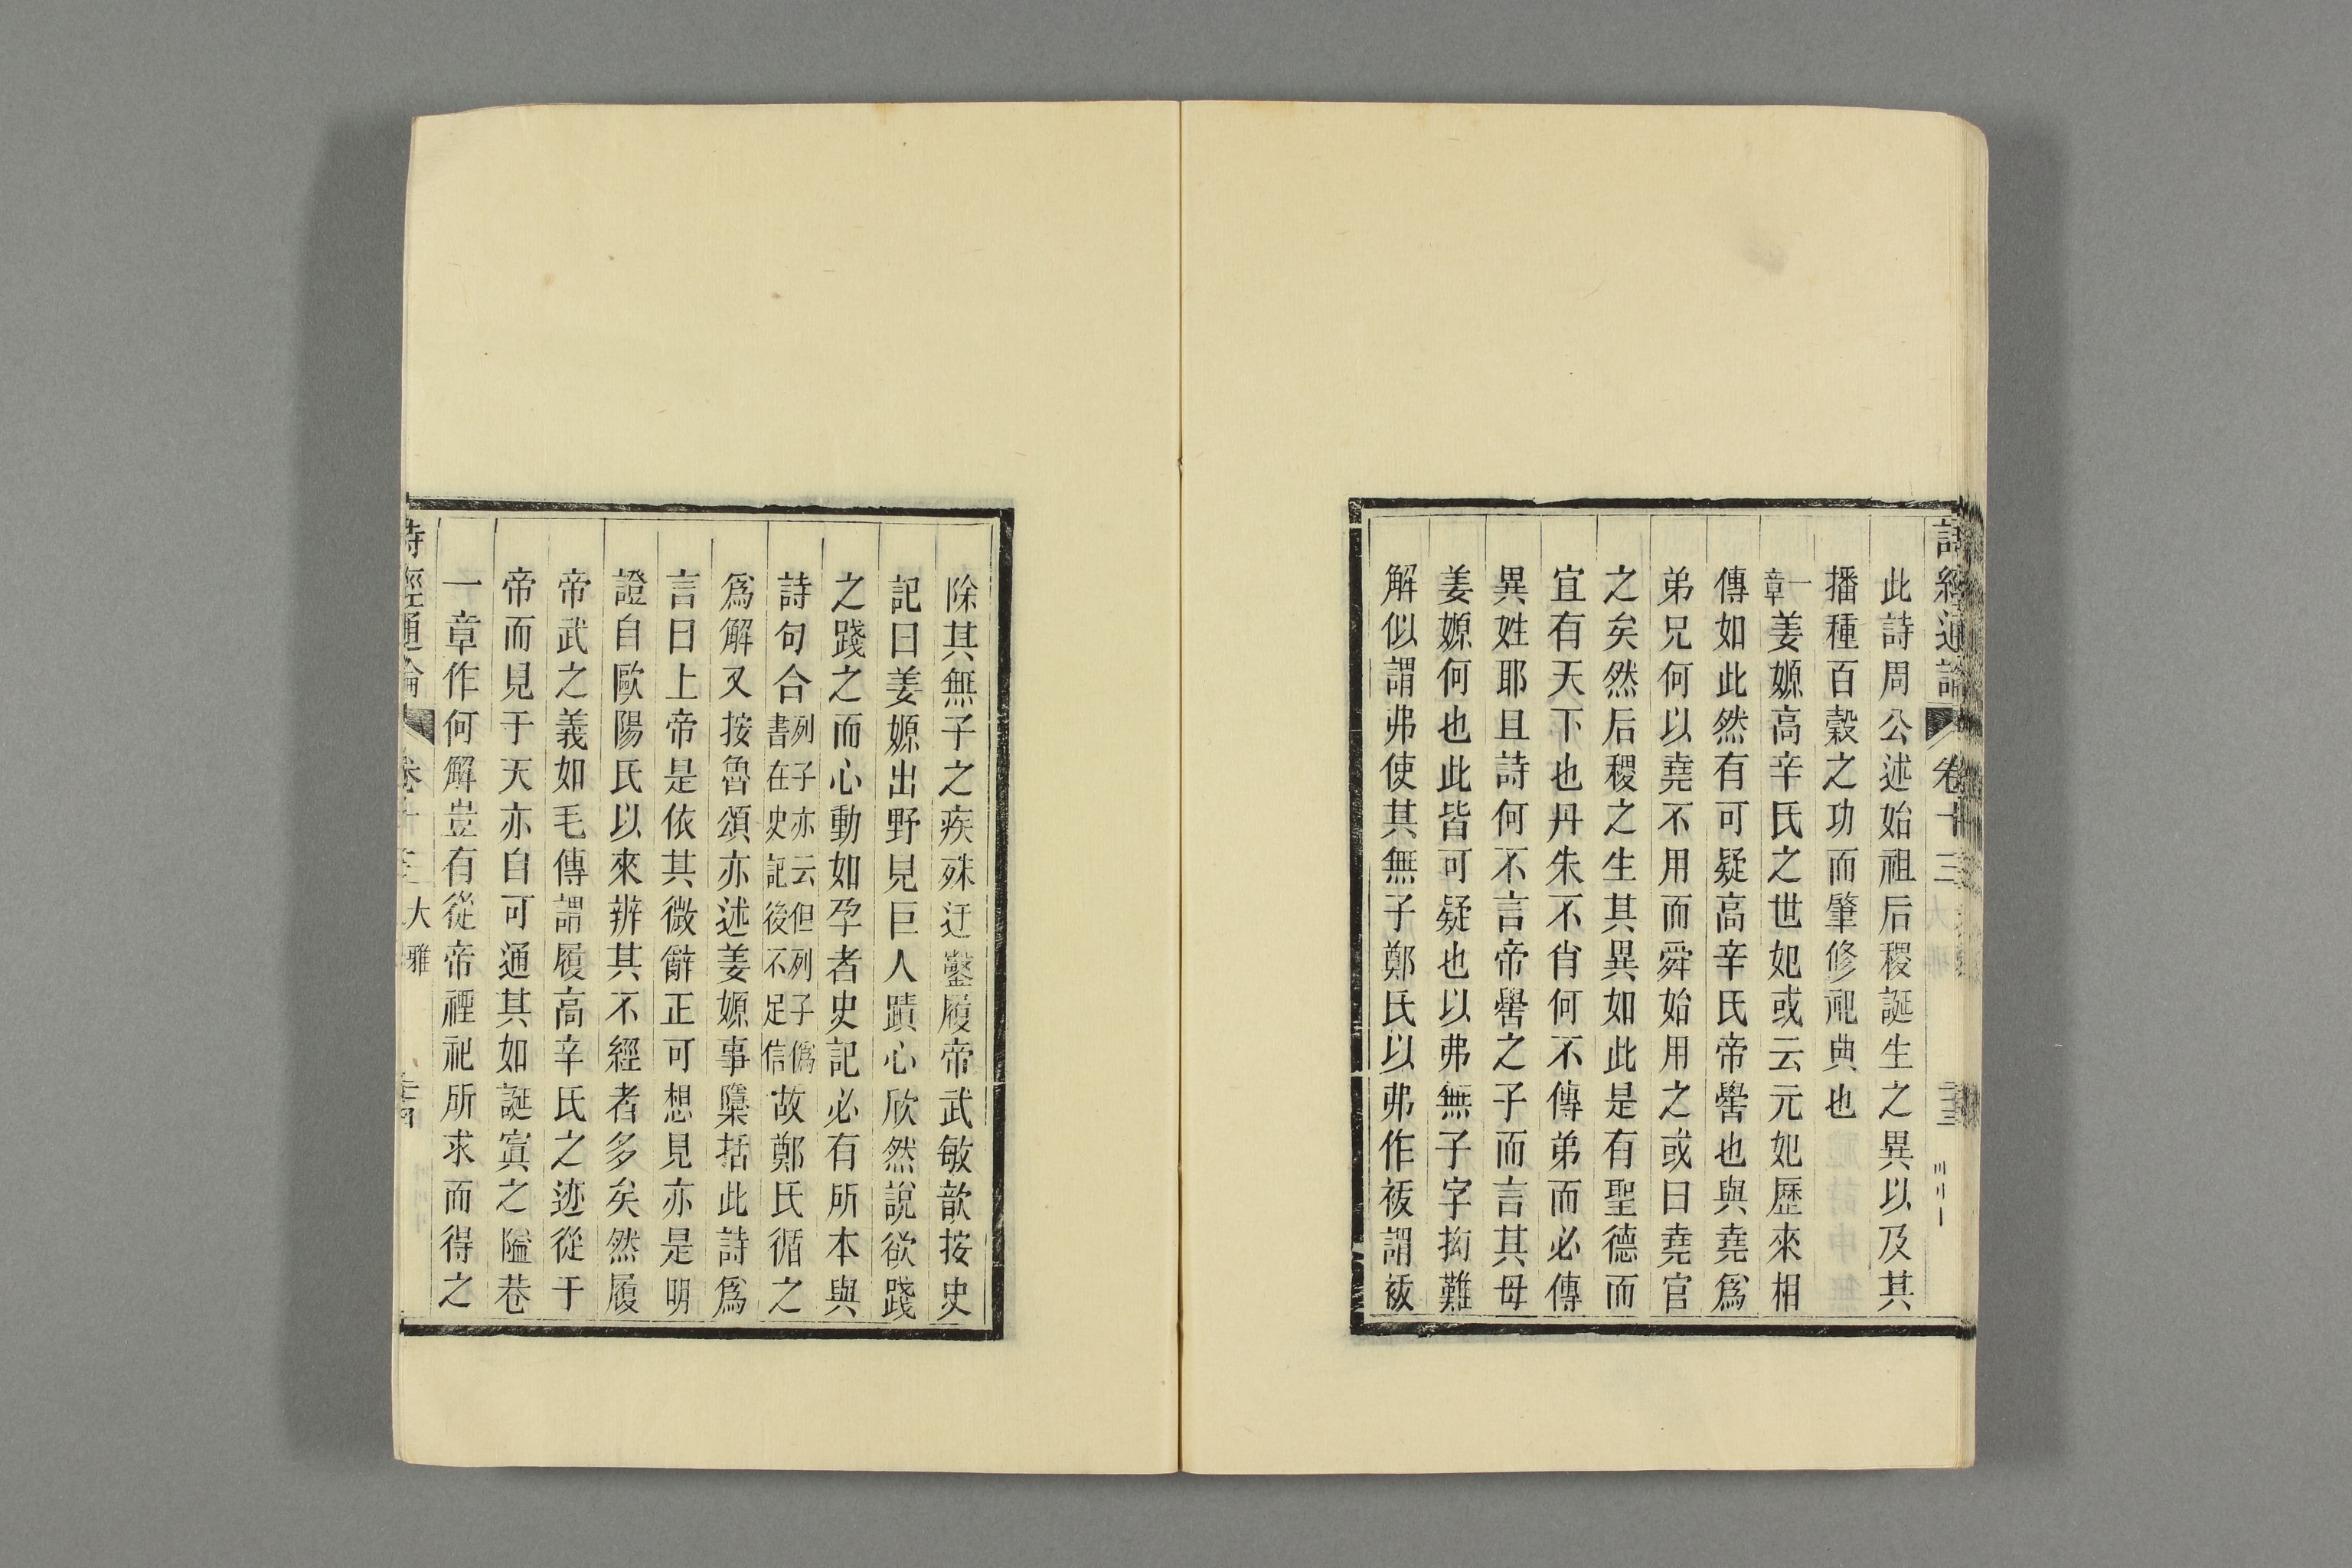 詩經通論 卷十三
此詩周公述始祖后稷誕生之異以及其
播種百穀之功而肇修祀典也
一章姜嫄高辛氏之世妃或云元妃歷來相
傳如此然有可疑高辛氏帝嚳也與堯爲
弟兄何以堯不用而舜始用之或曰堯官
之矣然后稷之生其異如此是有聖德而
宜有天下也丹朱不肖何不傳弟而必傳
異姓耶且詩何不言帝嚳之子而言其母
姜嫄何也此皆可疑也以弗無子字拗難
解似謂弗使其無子鄭氏以弗作祓謂祓
除其無子之疾殊迂鑿履帝武敏歆按史
記曰姜嫄出野見巨人蹟心欣然說欲踐
之踐之而心動如孕者史記必有所本與
詩句合列子亦云但列子僞書在史記後不足信故鄭氏循之
爲解又按魯頌亦述姜嫄事檃括此詩爲
言曰上帝是依其微辭正可想見亦是明
證自歐陽氏以來辨其不經者多矣然履
帝武之義如毛傳謂履高辛氏之迹從于
帝而見于天亦自可通其如誕寘之隘巷
一章作何解豈有從帝禋祀所求而得之
詩經通論 卷十三 大雅